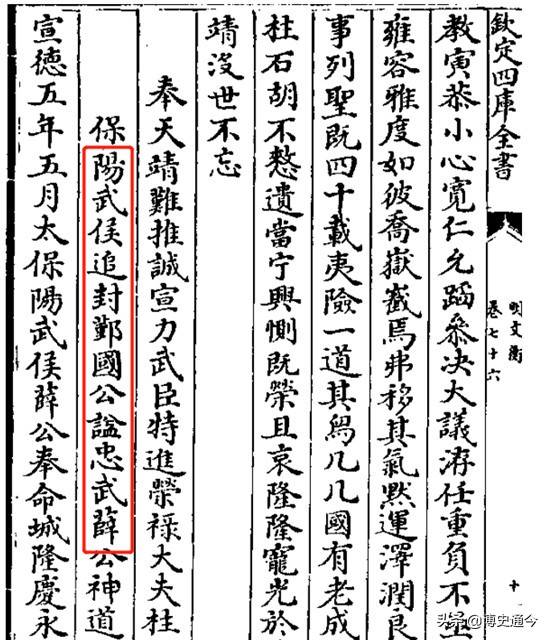 欽定四庫全書
明文衡
卷七十六
十
教寅恭小心寬仁允蹈叅决大議洊任重負不
雍容雅度如彼喬嶽巀焉弗移其氣黙運澤潤良
事列聖既四十載夷險一道其舄几几國有老成
柱石胡不憗遺當宁興惻既榮且哀隆隆寵光於
靖沒世不忘
奉天靖難推誠宣力武臣特進榮祿大夫柱
保陽武侯追封鄞國公諡忠武薛公神道
宣德五年五月太保陽武侯薛公奉命城隆慶永
头条@博史通今